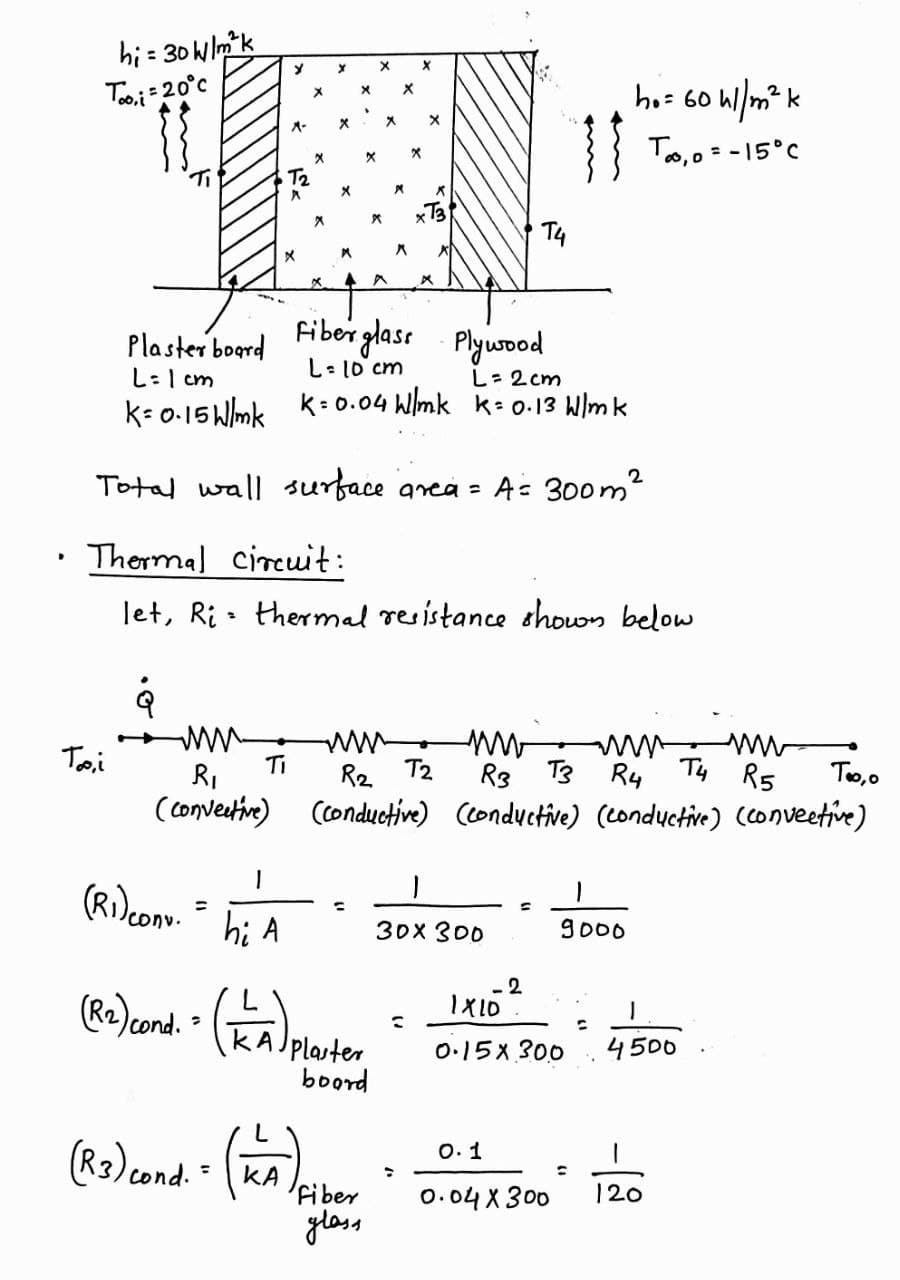 hi = 30 W/m²k
T∞,i = 20°C
ho = 60 W/m² k
T∞,o = -15°C
T1
T2
T3
T4
Plaster board
L = 1 cm
K = 0.15 W/mk
Fiber glass
L = 10 cm
K = 0.04 W/mk
Plywood
L = 2cm
K = 0.13 W/mk
Total wall surface area = A = 300m²
• Thermal Circuit:
let, Ri = thermal resistance shown below
Q̇
T∞,i R1 T1 R2 T2 R3 T3 R4 T4 R5 T∞,o
(convective) (conductive) (conductive) (conductive) (convective)
(R1)conv. = 1/(hi A) = 1/(30 × 300) = 1/9000
(R2)cond. = (L/kA) Plaster board = 1×10⁻²/(0.15 × 300) = 1/4500
(R3)cond. = (L/kA) Fiber glass = 0.1/(0.04 × 300) = 1/120